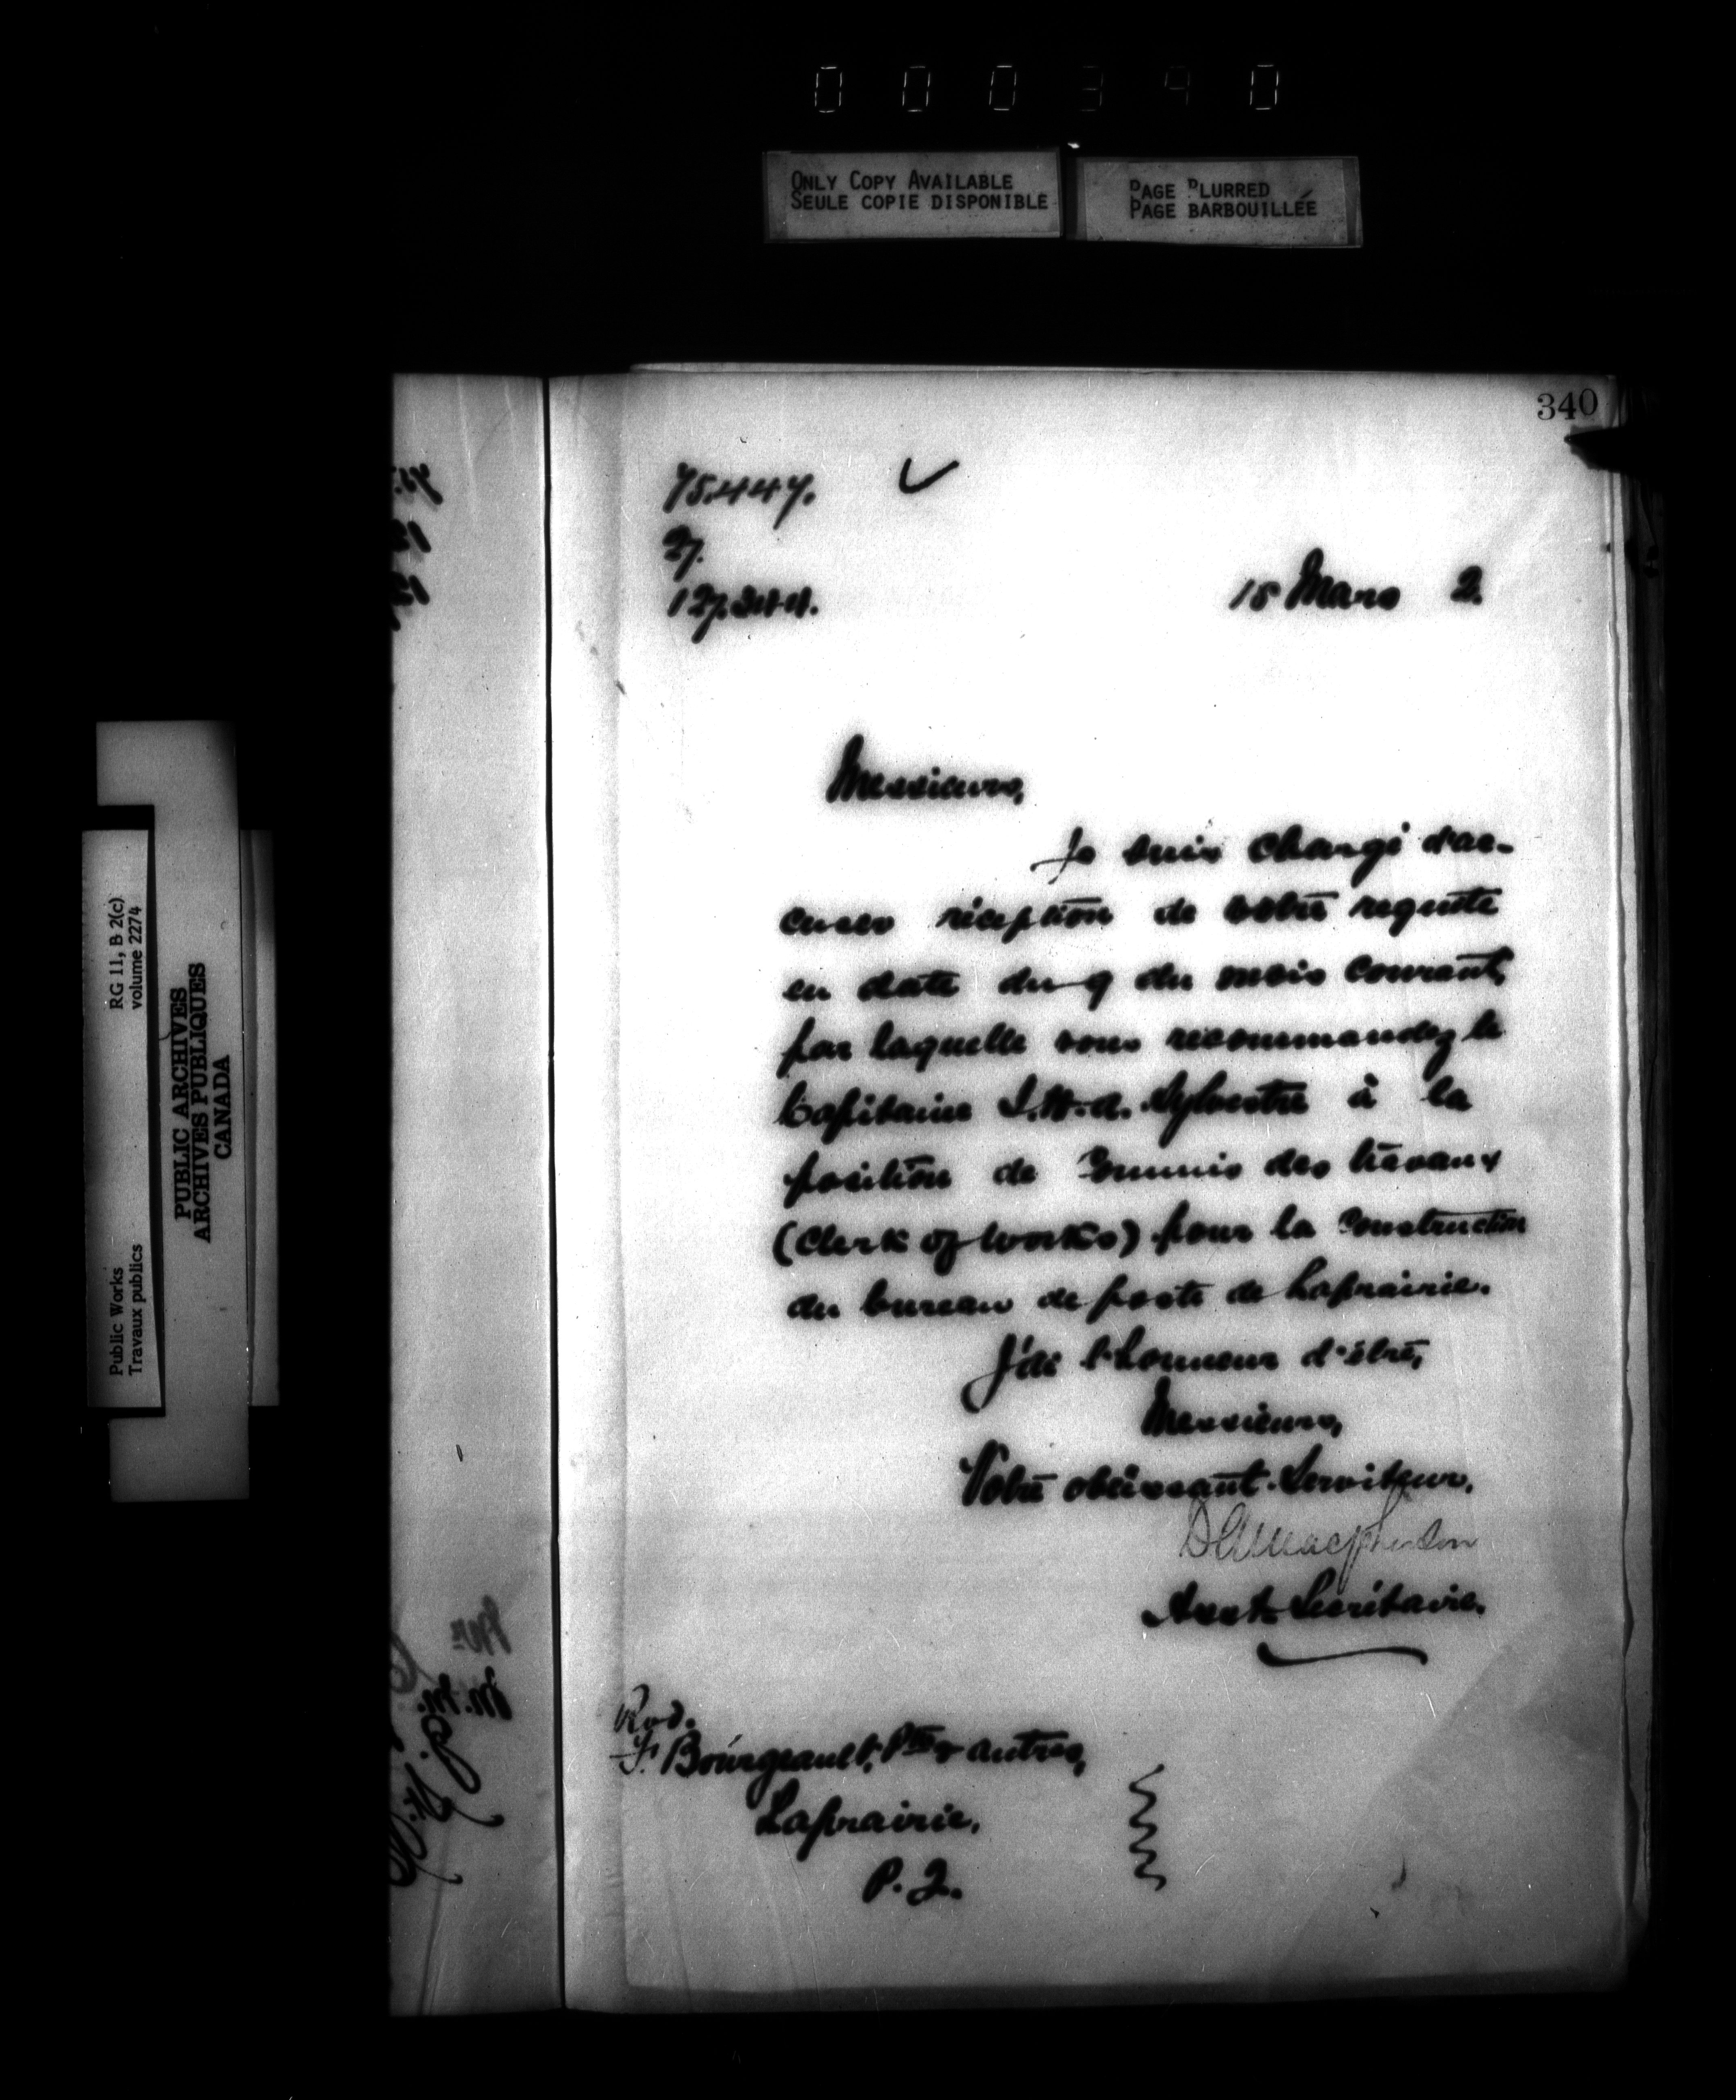 0 0 0 3 4 0
ONLY COPY AVAILABLE
SEULE COPIE DISPONIBLE
PAGE BLURRED
PAGE BARBOUILLÉE
RG 11, B 2(c)
volume 2274
Public Works
Travaux publics
PUBLIC ARCHIVES
ARCHIVES PUBLIQUES
CANADA
340
75.447.
27.
127.344.
15 Mars 2.
Messieurs,
Je suis chargé d'ac-
cuser réception de votre requête
en date du 9 du mois courant,
par laquelle vous recommandez le
Capitaine Sylvestre à la
position de Commis des travaux
(Clerk of Works) pour la construction
du bureau de poste de Laprairie.
J'ai l'honneur d'être,
Messieurs,
Votre obéissant Serviteur,
DA Macpherson
Asst. Secrétaire.
Rvd.
F. Bourgeault, Ptre & autres,
Laprairie,
P. Q.